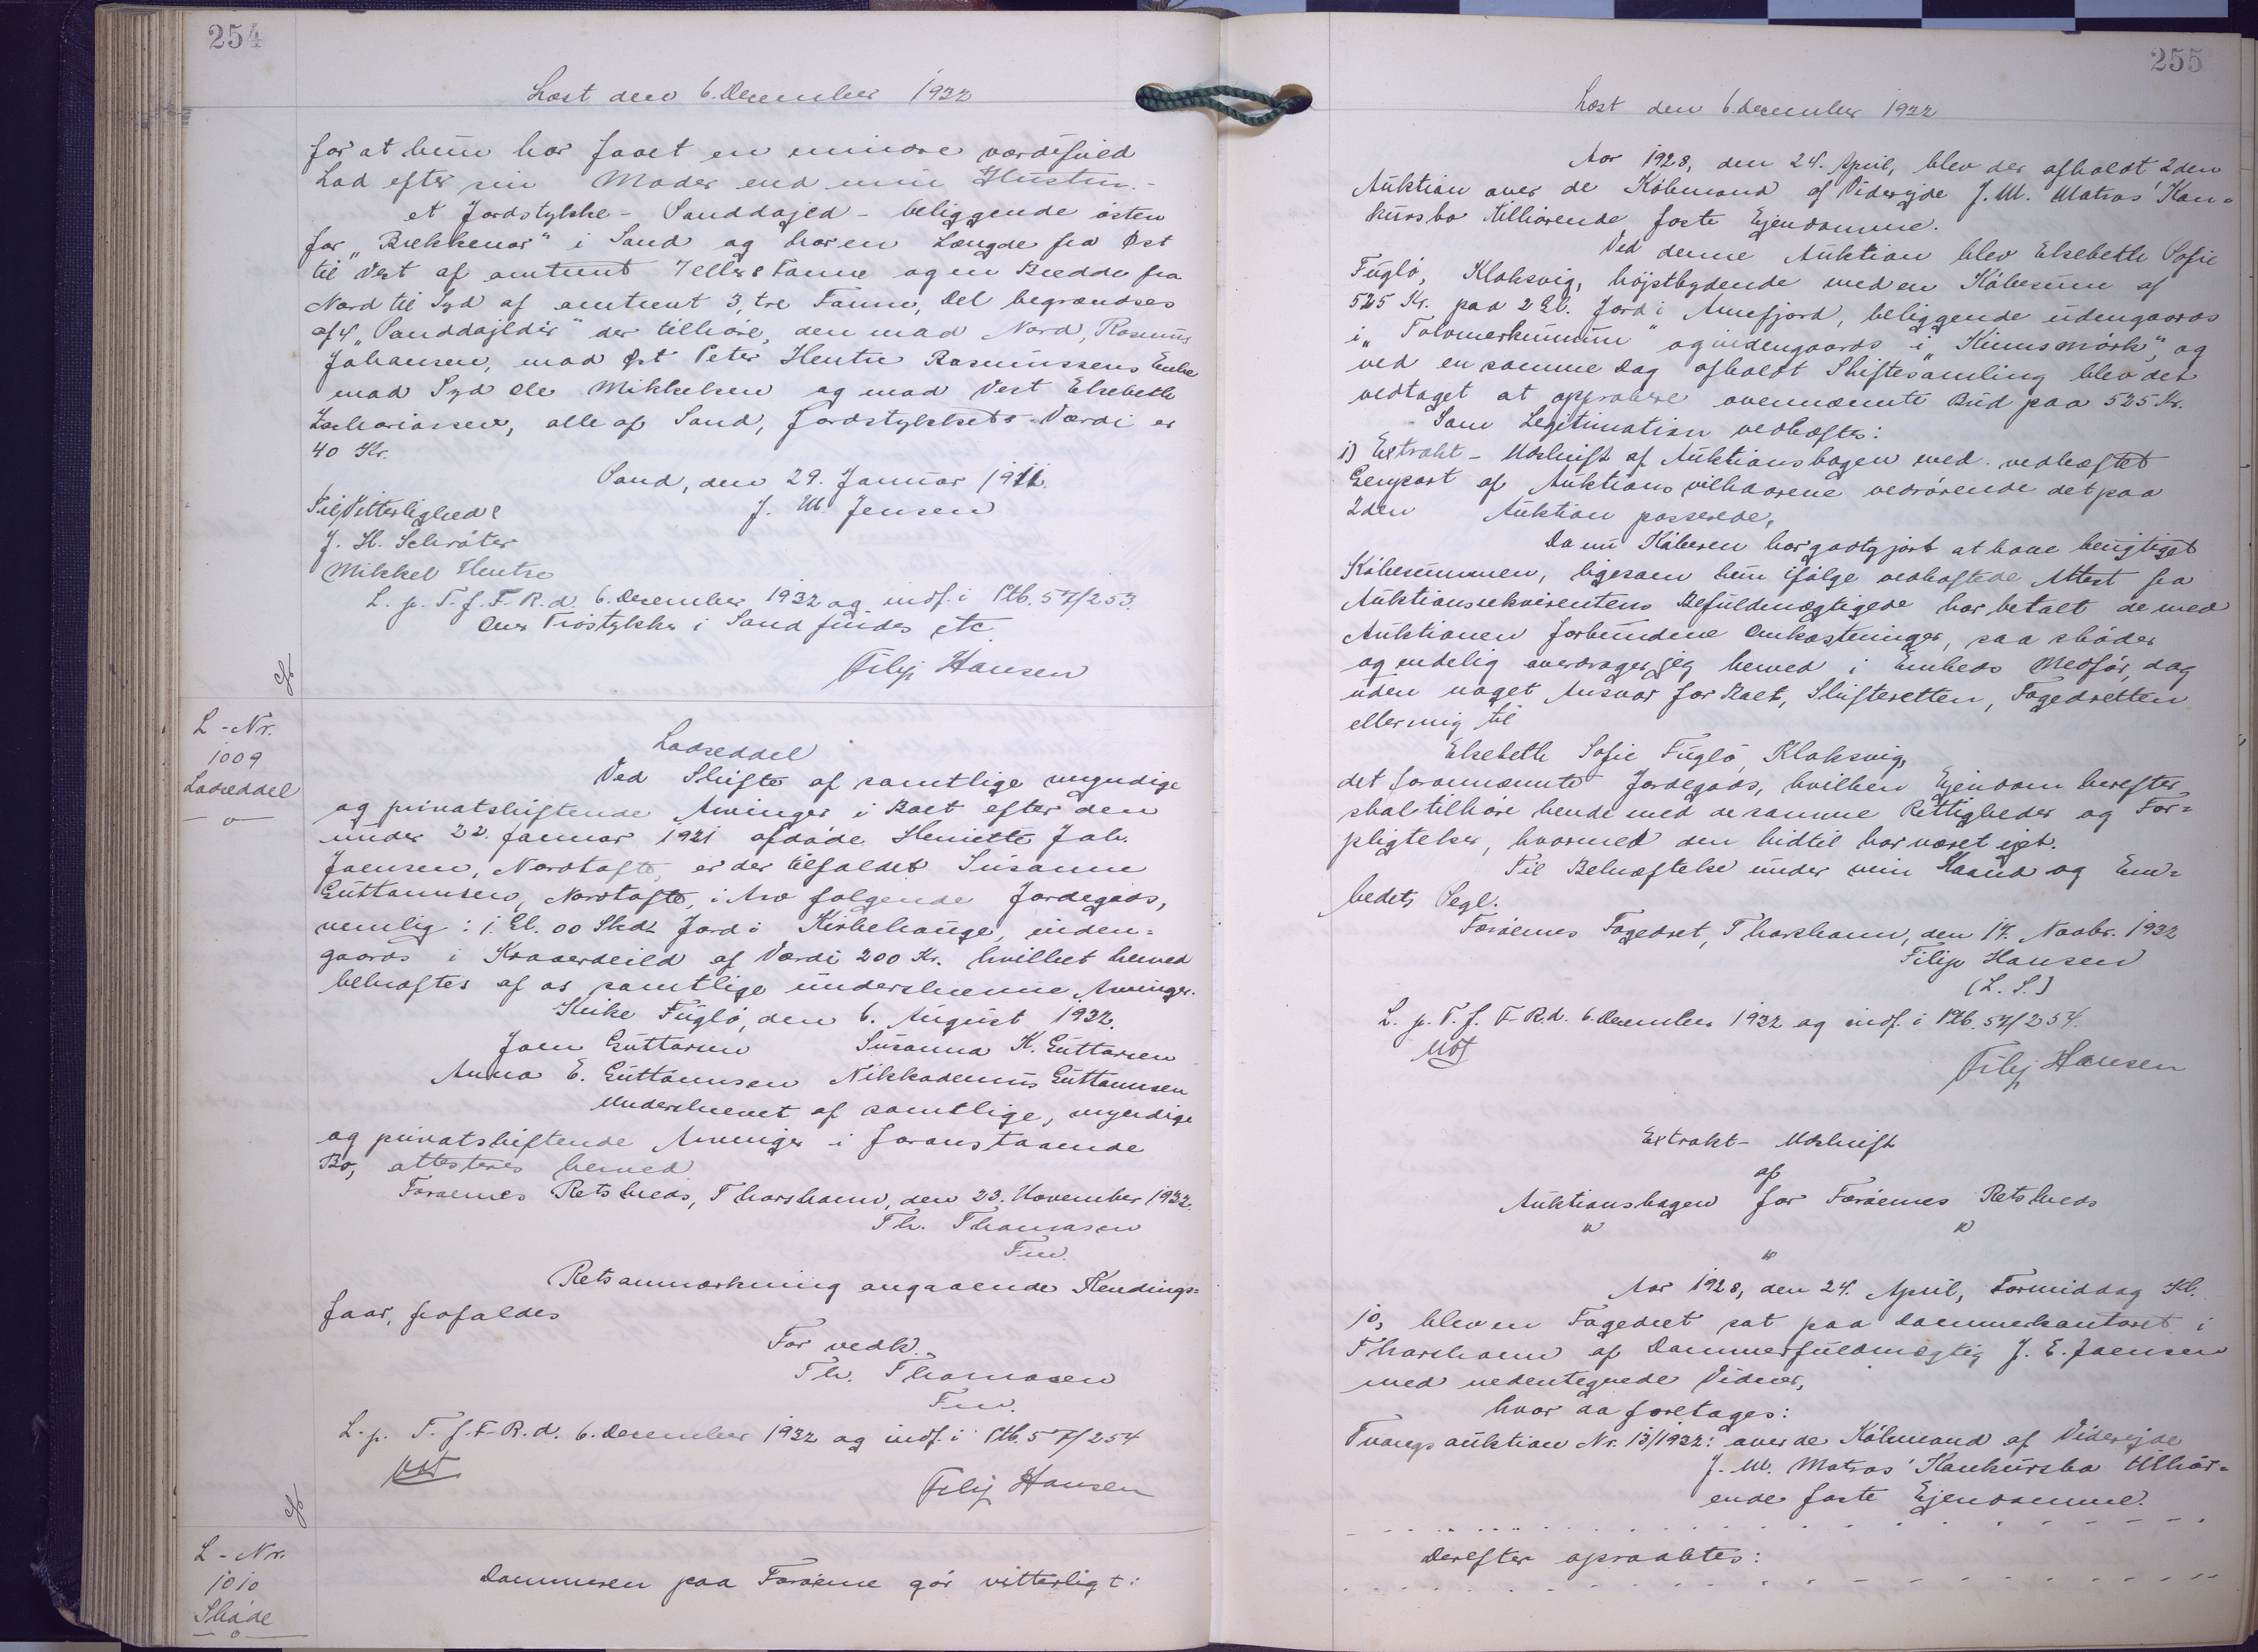 254
Læst den 6. December 1932
for at hun har faaet en mindre værdifuld
Lod efter sin Moder end min Hustru.-
et Jordstykke - Sanddajld - beliggende østen
for „Brekkenar" i Sand og har en Længde fra Øst
til Vest af omtrent 7 eller 8 Favne og en Bredde fra
Nord til Syd af omtrent 3, tre Favne, Del begrændses
af 4 „Sanddajldir" der tilhøre, den mod Nord, Rasmus
Johansen, mod Øst Peter Hentze Rasmussens Enke
mod Syd Ole Mikkelsen og mod Vest Elsebeth
Zachariasen, alle af Sand, Jordstykkets Værdi er
40 Kr.
Sand, den 29. Januar 1911.
Til Vitterlighed: J. M. Jensen
J. H. Schrøter
Mikkel Hentze
L. p. T. f. F. R. d. 6. December 1932 og indf. i Ptb. 57/253.
Over Trøstykke i Sand findes etc.
Filip Hansen
L-Nr.
1009
Lodseddel
Lodseddel
Ved Skifte af samtlige myndige
og privatskiftende Arvinger i Boet efter den
under 22. Januar 1921 afdøde Henriette Joh.
Joensen, Nordtofte, er der tilfaldet Susanne
Guttormsen, Nordtofte, i Arv følgende Jordegods,
nemlig: 1. Gl. 00 Skd. Jord i Kirkehauge, inden=
gaards i Kraaerdeild af Værdi 200 Kr. hvilket herved
bekræftes af os samtlige underskrevne Arvinger.
Kirke Fuglø, den 6. August 1932.
Joen Guttorsen Susanna K. Guttorsen
Anna E. Guttormsen Nikkodemus Guttormsen
Underskrevet af samtlige, myndige
og privatskiftende Arvinger i foranstaaende
Bo, attesteres herved
Færøernes Retskreds, Thorshavn, den 23. November 1932.
Th. Thomasen
Fm.
Retsanmærkning angaaende Kendings=
faar, frafaldes
For vedk.
Th. Thomasen
Fm.
L. p. T. f. F. R. d. 6. December 1932 og indf. i Ptb. 57/254
Filip Hansen
L-Nr.
1010
Skøde
Dommeren paa Færøerne gør vitterligt:
255
Læst den 6. December 1932
Aar 1928, den 24. April, blev der afholdt 2den
Auktion over de Købmand af Viderejde J. M. Matras' Kon=
kursbo tilhørende faste Ejendomme.
Ved denne Auktion blev Elsebeth Sofie
Fuglø, Klaksvig, højstbydende med en Købesum af
525 Kr. paa 2 Gl. Jord i Arnefjord, beliggende udengaards
i „Tolvmerkunum" og indengaards i „Kunsmørk", og
ved en samme Dag afholdt Skiftesamling blev det
vedtaget at approbere ovennævnte Bud paa 525 Kr.
Som Legitimation vedhæftes:
1) Extrakt-Udskrift af Auktionsbogen med vedhæftet
Genpart af Auktionsvilkaarene vedrørende det paa
2den Auktion passerede,
Da nu Køberen har godtgjort at have berigtiget
Købesummen, ligesom hun ifølge vedhæftede Attest fra
Auktionsrekvirentens Befuldmægtigede har betalt de med
Auktionen forbundne Omkostninger, saa skøder
og endelig overdrager jeg herved i Embeds Medfør, dog
uden noget Ansvar for Boet, Skifteretten, Fogedretten
eller mig til
Elsebeth Sofie Fuglø, Klaksvig,
det forannævnte Jordegods, hvilken Ejendom herefter
skal tilhøre hende med de samme Rettigheder og For=
pligtelser, hvormed den hidtil har været ejet.
Til Bekræftelse under min Haand og Em=
bedets Segl.
Færøernes Fogedret, Thorshavn, den 17. Novbr. 1932
Filip Hansen
(L. S.)
L. p. T. f. F. R. d. 6. December 1932 og indf. i Ptb. 57/254.
Filip Hansen
Extrakt-Udskrift
af
Auktionsbogen for Færøernes Retskreds
" "
"
Aar 1928, den 24. April, Formiddag Kl.
10, blev en Fogedret sat paa Dommerkontoret i
Thorshavn af Dommerfuldmægtig J. E. Joensen
med undertegnede Vidner,
hvor da foretages:
Tvangsauktion Nr. 13/1932: over de Købmand af Viderejde
J. M. Matras' Konkursbo tilhør=
ende faste Ejendomme.
Derefter opraabtes: